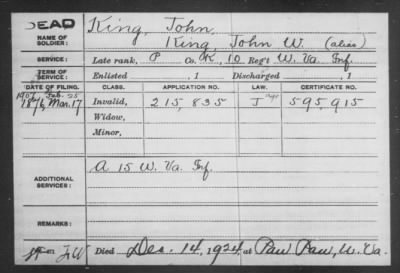 DEAD King, John
NAME OF SOLDIER: King, John W. (alias)
SERVICE: Late rank, P Co. K, 10 Reg't W. Va. Inf.
TERM OF SERVICE: Enlisted , 1 Discharged , 1
DATE OF FILING. CLASS. APPLICATION NO. LAW. CERTIFICATE NO.
1907, Feb. 25
1876, Mar. 17 Invalid, 215,835 J 595,915
Widow,
Minor,
ADDITIONAL SERVICES: A 15 W. Va. Inf.
REMARKS:
Died Dec. 14, 1924, at Paw Paw, W. Va.